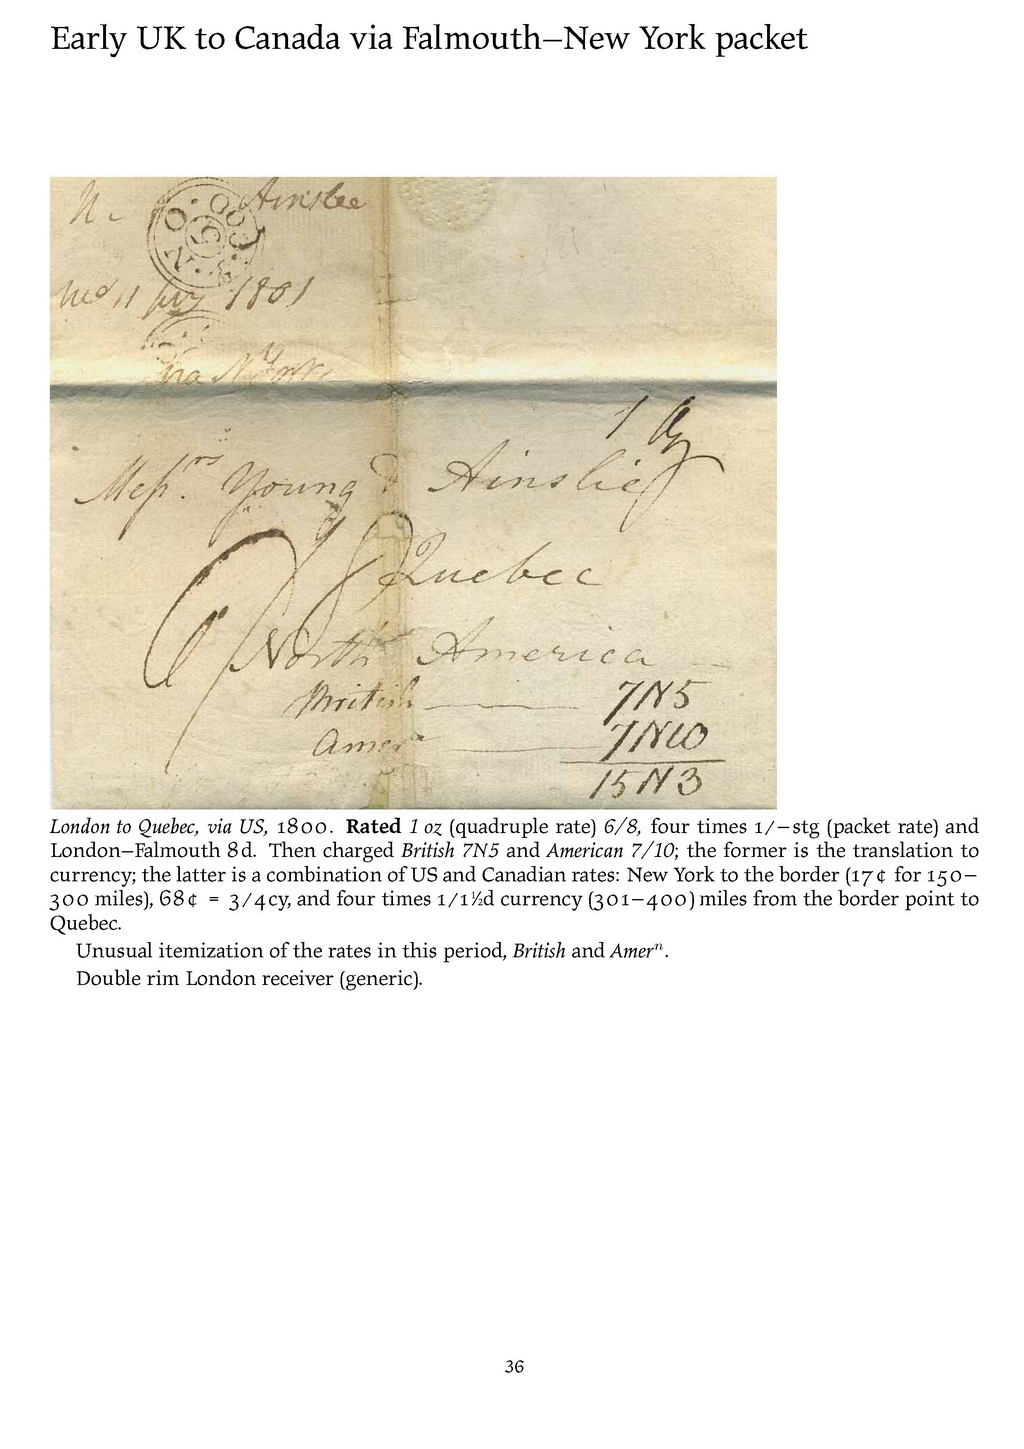 Early UK to Canada via Falmouth–New York packet
Ainslee
1801
via N York
1 oz
Messrs. Young & Ainslie
Quebec
6/8
North America
British 7N5
Amern 7N10
15N3
London to Quebec, via US, 1800. Rated 1 oz (quadruple rate) 6/8, four times 1/–stg (packet rate) and
London–Falmouth 8d. Then charged British 7N5 and American 7/10; the former is the translation to
currency; the latter is a combination of US and Canadian rates: New York to the border (17¢ for 150–
300 miles), 68¢ = 3/4cy, and four times 1/1½d currency (301–400) miles from the border point to
Quebec.
Unusual itemization of the rates in this period, British and Amerⁿ.
Double rim London receiver (generic).
36